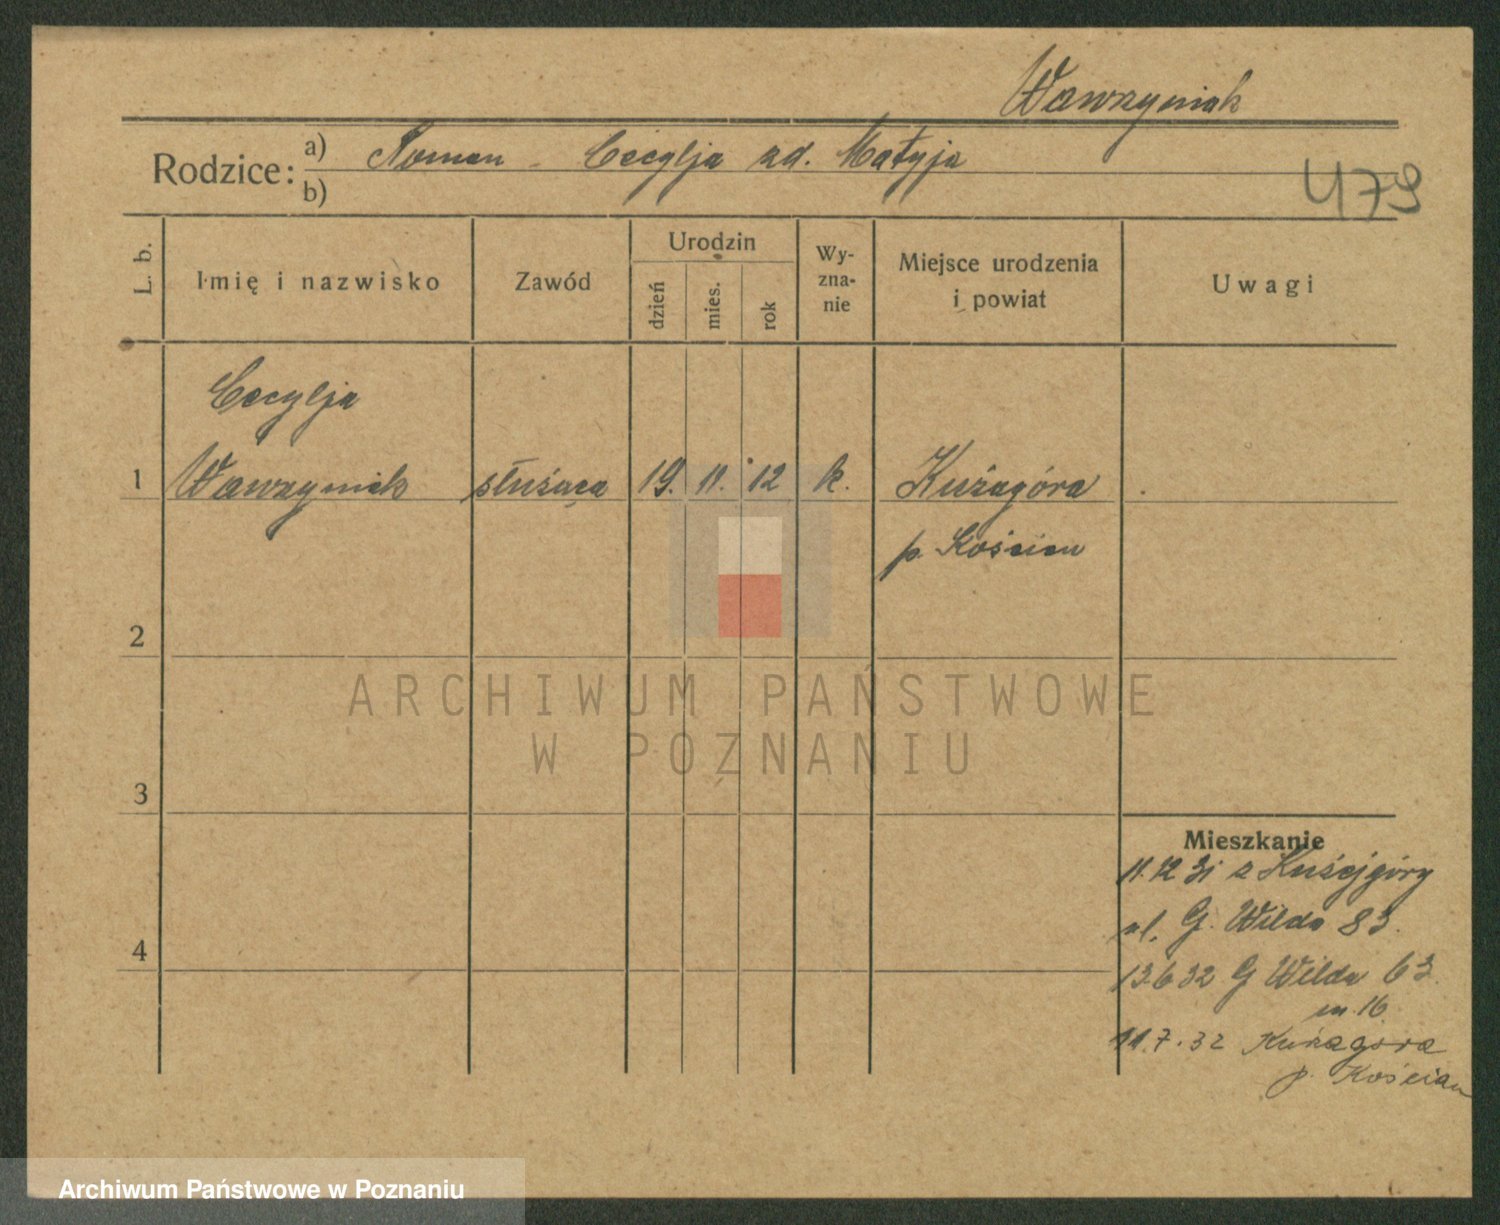 Wawrzyniak
Rodzice: a) Roman - Cecylja zd. Matyja
b)
479
L. b.
Imię i nazwisko
Zawód
Urodzin
dzień
mies.
rok
Wy-
zna-
nie
Miejsce urodzenia
i powiat
Uwagi
Cecylja
1 Wawrzyniak służąca 19. 11. 12 k. Kurzagóra
p. Kościan
2
ARCHIWUM PAŃSTWOWE
W POZNANIU
3
Mieszkanie
11.12 31 z
ul. G. Wilda 83.
4
13.6 32 G Wilda 63
m. 16
11.7.32 Kurzagora
p. Kościan
Archiwum Państwowe w Poznaniu